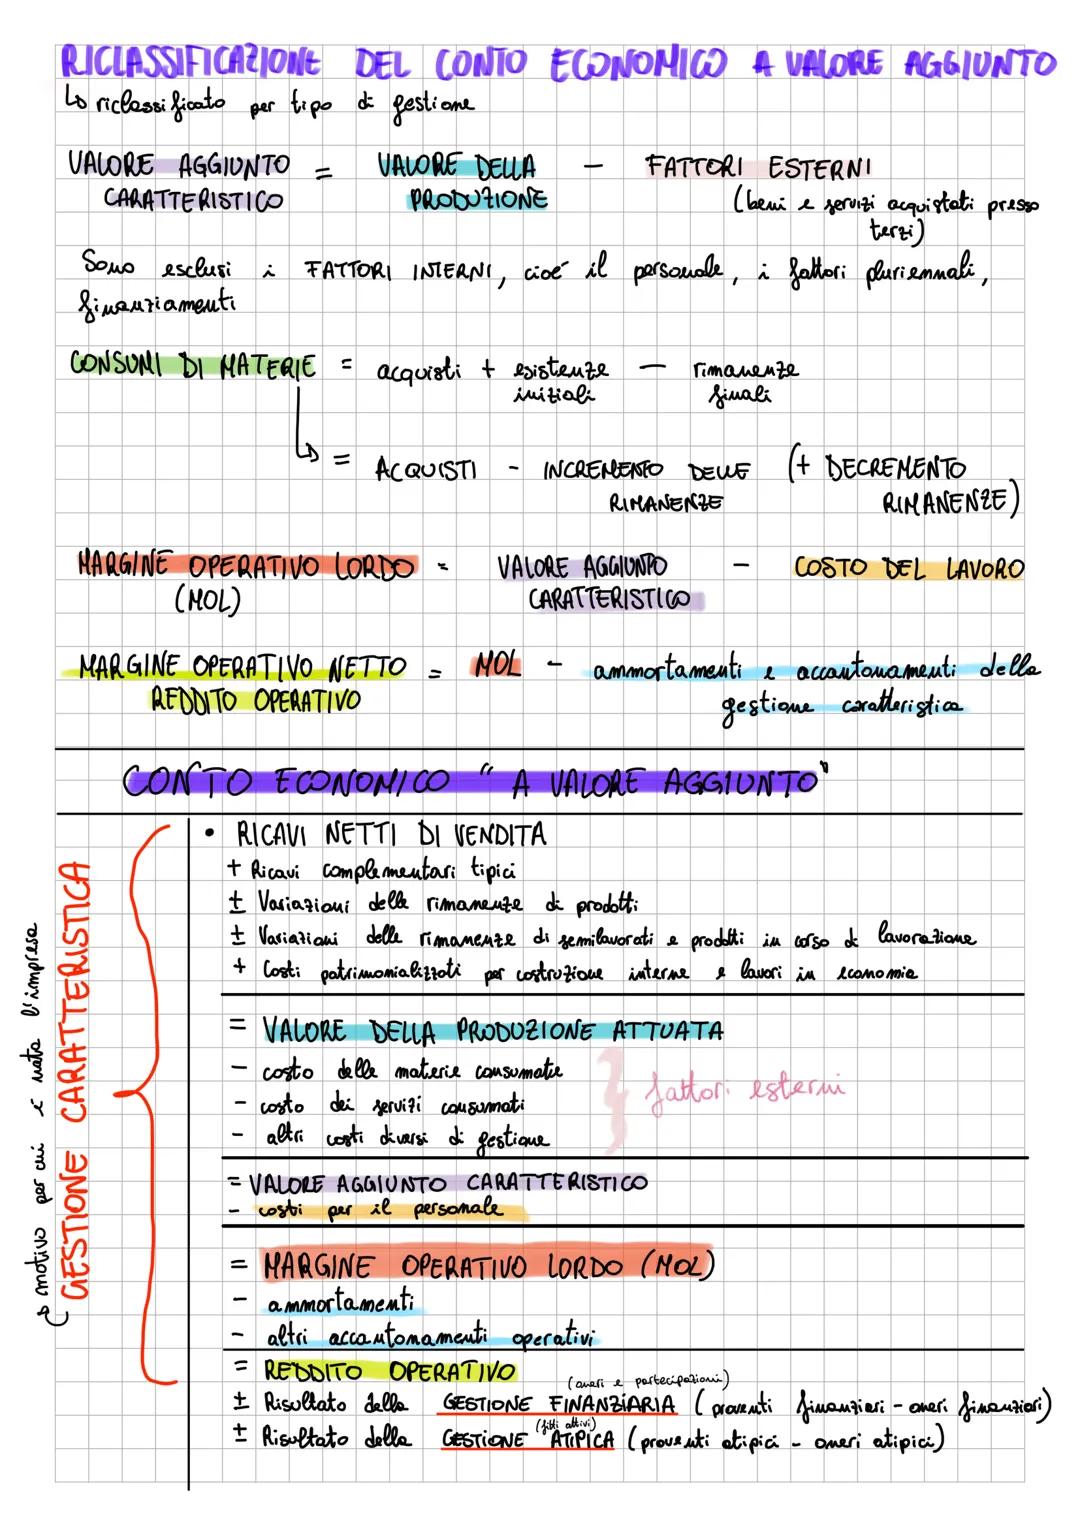 RICLASSIFICAZIONE DEL CONTO ECONOMICO A VALORE AGGIUNTO
↳ riclassificato per tipo di gestione
VALORE AGGIUNTO = VALORE DELLA - FATTORI ESTERNI
CARATTERISTICO PRODUZIONE (beni e servizi acquistati presso
terzi)
Sono esclusi i FATTORI INTERNI, cioé il personale, i fattori pluriennali,
finanziamenti
CONSUMI DI MATERIE = acquisti + esistenze - rimanenze
iniziali finali
↳ = ACQUISTI - INCREMENTO DELLE (+ DECREMENTO
RIMANENZE RIMANENZE)
MARGINE OPERATIVO LORDO = VALORE AGGIUNTO - COSTO DEL LAVORO
(MOL) CARATTERISTICO
MARGINE OPERATIVO NETTO = MOL - ammortamenti e accantonamenti della
REDDITO OPERATIVO gestione caratteristica
CONTO ECONOMICO "A VALORE AGGIUNTO"
↳ motivo per cui è nata l'impresa
GESTIONE CARATTERISTICA
• RICAVI NETTI DI VENDITA
+ Ricavi complementari tipici
± Variazioni delle rimanenze di prodotti
± Variazioni delle rimanenze di semilavorati e prodotti in corso di lavorazione
+ Costi patrimonializzati per costruzione interne e lavori in economia
= VALORE DELLA PRODUZIONE ATTUATA
- costo delle materie consumate
- costo dei servizi consumati
- altri costi diversi di gestione
fattori esterni
= VALORE AGGIUNTO CARATTERISTICO
- costi per il personale
= MARGINE OPERATIVO LORDO (MOL)
- ammortamenti
- altri accantonamenti operativi
= REDDITO OPERATIVO
(oneri e partecipazioni)
± Risultato della GESTIONE FINANZIARIA (proventi finanziari - oneri finanziari)
(fitti attivi)
± Risultato della GESTIONE ATIPICA (proventi atipici - oneri atipici)